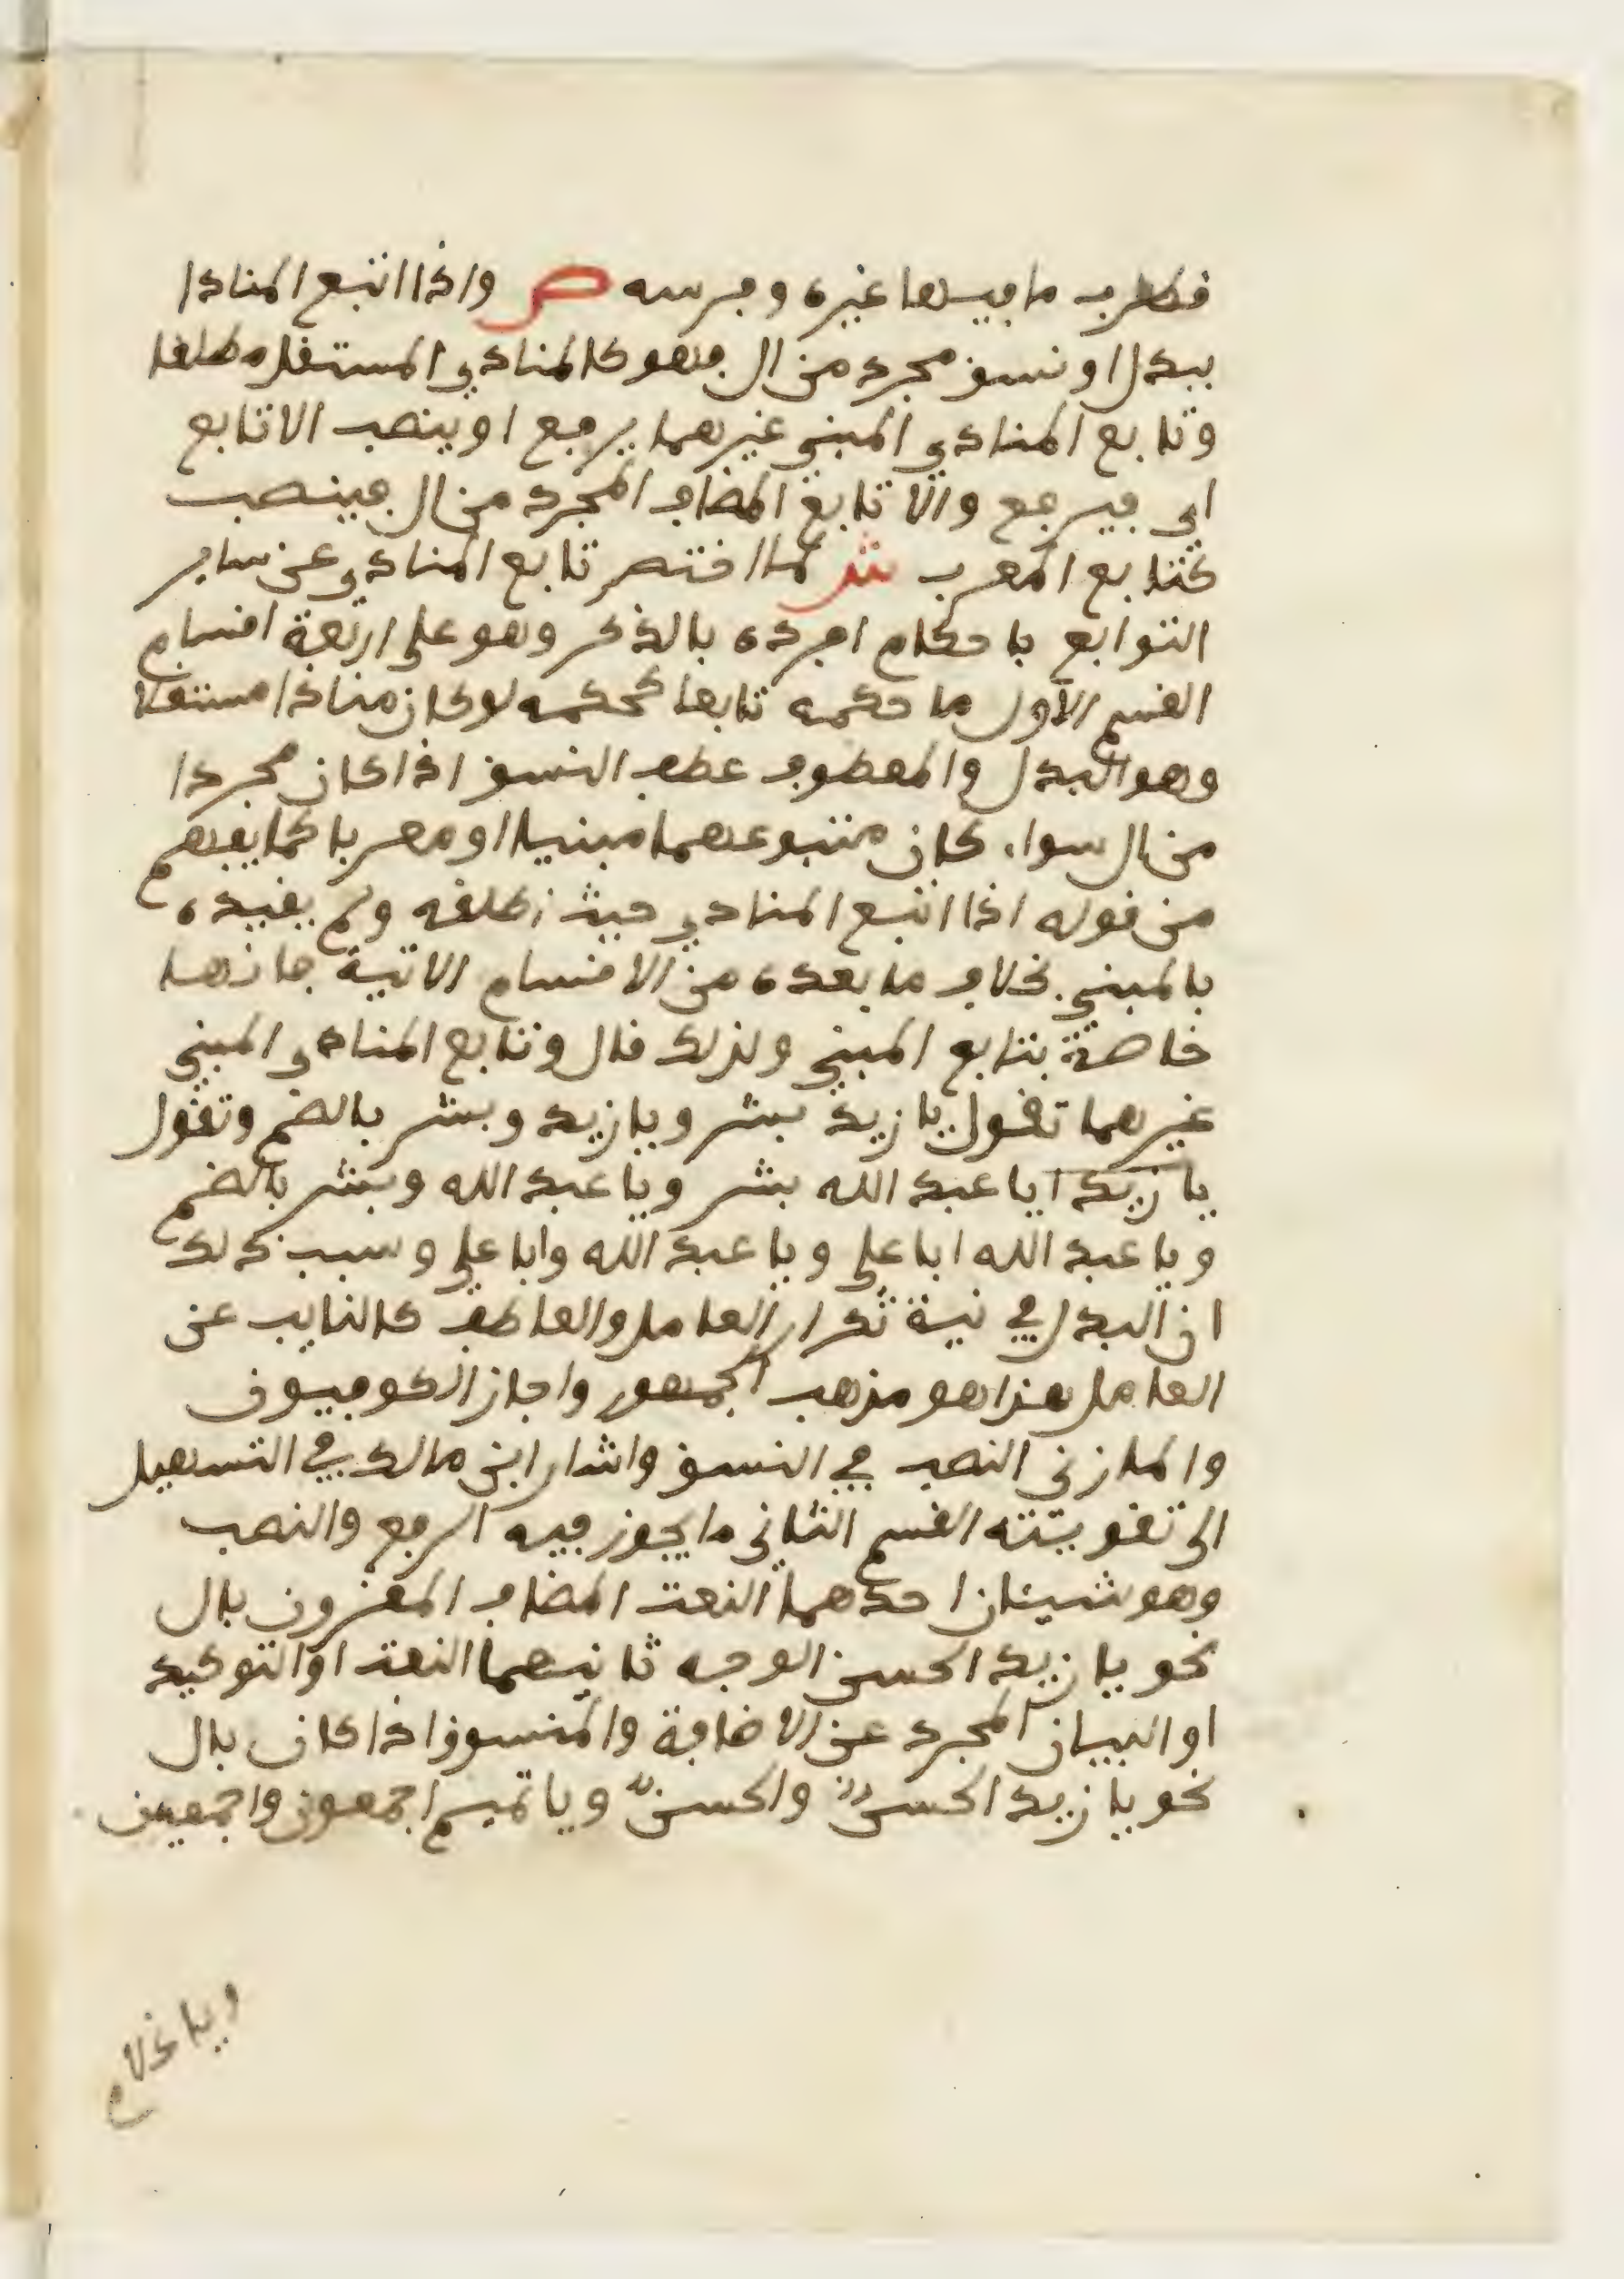 قطرب ما فيها غيره وفرسه ص واذا اتبع المنادا
ببدل او نسق مجرد من ال فهو كالمنادي المستقل مطلقا
وتابع المنادي المبني غيرهما يرفع او ينصب الا تابع
اي فيرفع والا تابع المضاف المجرد من ال فينصب
كتابع المعرب ش لما اختص تابع المنادي عن ساير
التوابع باحكام افرده بالذكر وهو على اربعة اقسام
القسم الاول ما حكمه تابعا كحكمه لو كان مناذا مستقلا
وهو البدل والمعطوف عطف النسق اذا كان مجردا
من ال سواء كان متبوعهما مبنيا او معربا كما يفهم
من قوله اذا اتبع المنادي حيث اطلقه ولم يقيده
بالمبني بخلاف ما بعده من الاقسام الاتية فانها
خاصة بتابع المبني ولذلك قال وتابع المنادى المبني
غيرهما تقول يا زيد بشر ويا زيد وبشر بالضم وتقول
يا زيد ايا عبد الله بشر ويا عبد الله وبشر بالضم
ويا عبد الله ابا علي ويا عبد الله وابا علي وسبب ذلك
ان البدل في نية تكرار العامل والعاطف كالنايب عن
العامل هذا هو مذهب الجمهور واجاز الكوفيون
والمازني النصب في النسق واشار ابن مالك في التسهيل
الى تقويته القسم الثاني ما يجوز فيه الرفع والنصب
وهو شيئان احدهما النعت المضاف المقرون بال
نحو يا زيد الحسن الوجه ثانيهما النعت او التوكيد
او البيان المجرد عن الاضافة والمنسوق اذا كان بال
نحو يا زيد الحسن والحسن ويا تميم اجمعون واجمعين
ويا غلام